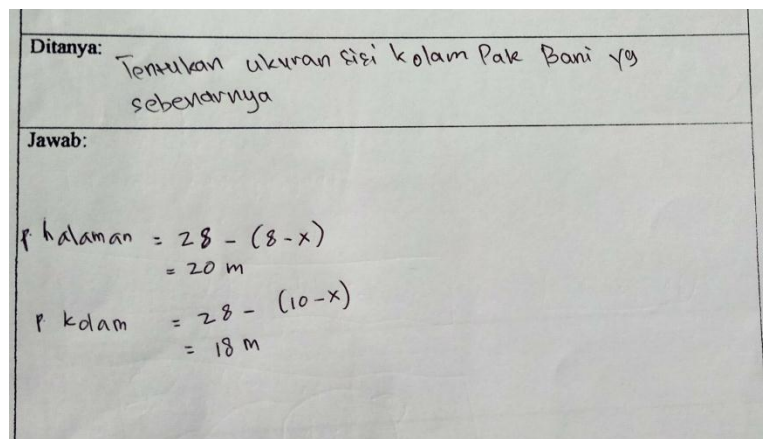 Ditanya: Tentukan ukuran sisi kolam Pak Bani yg
sebenarnya
Jawab:
P. halaman = 28 - (8-x)
= 20 m
P kolam = 28 - (10-x)
= 18 m